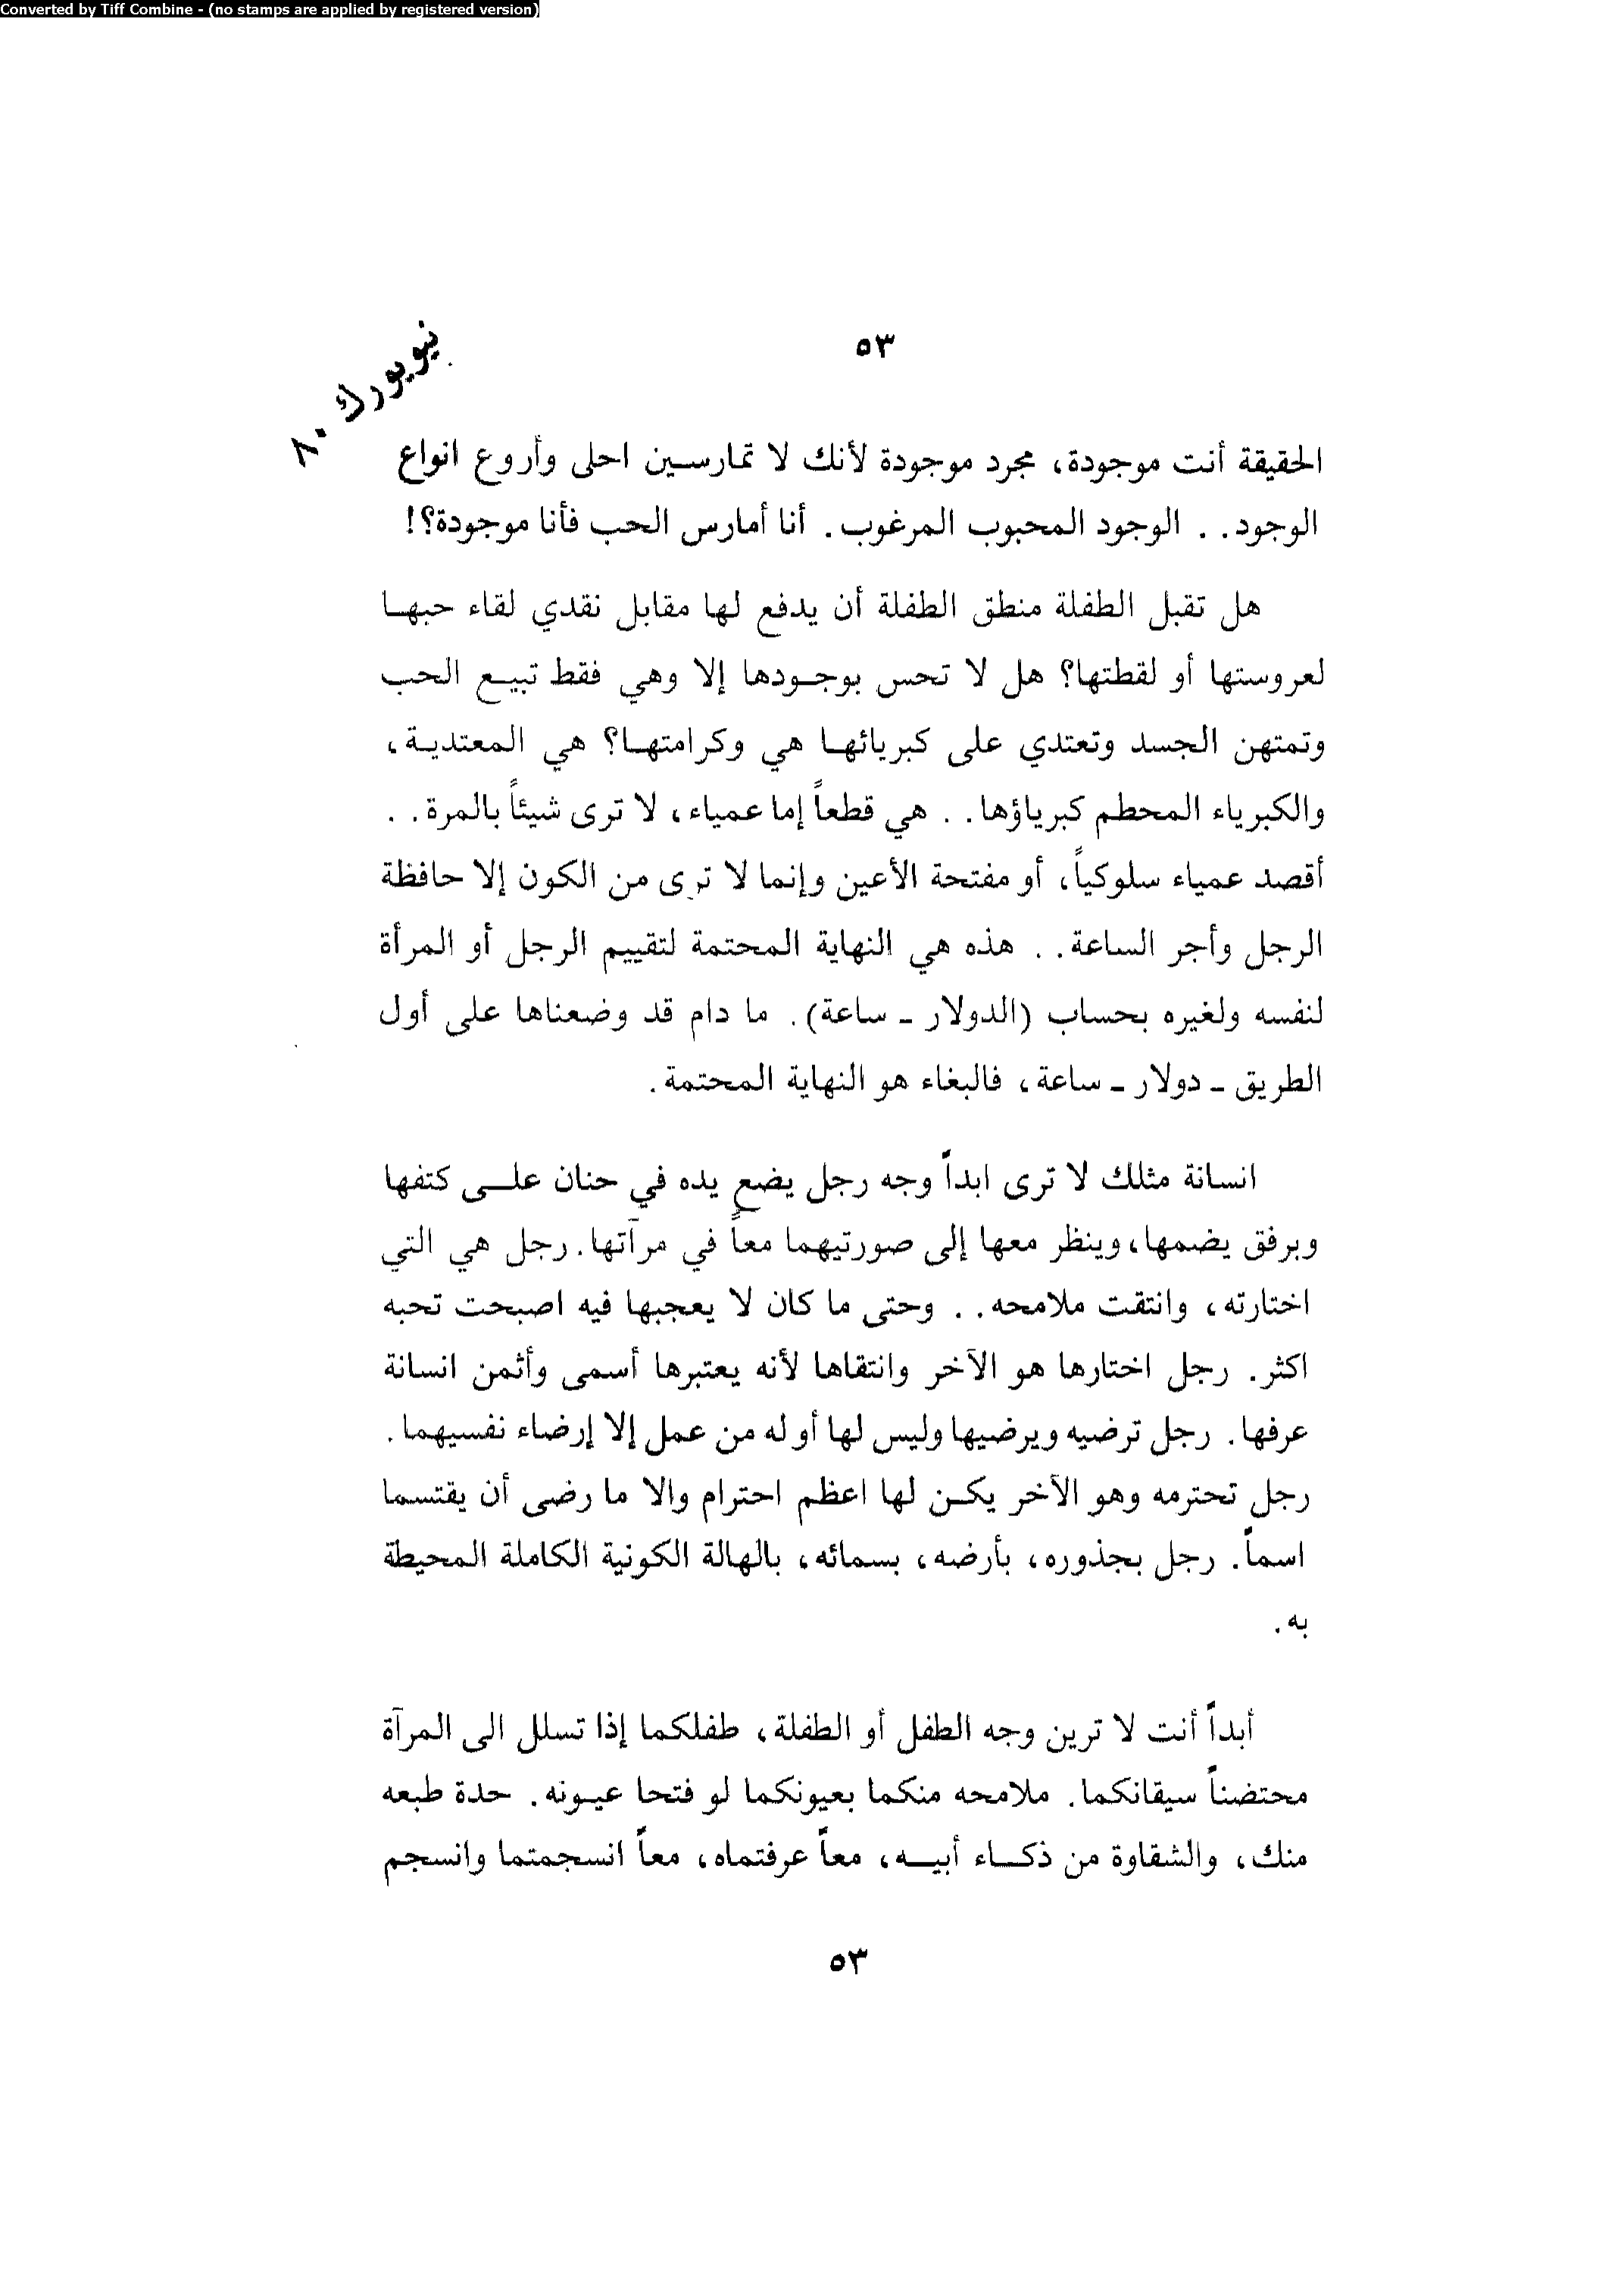 Converted by Tiff Combine - (no stamps are applied by registered version)
٥٣
نيويورك ٨٠
الحقيقة أنت موجودة، مجرد موجودة لأنك لا تمارسين احلى وأروع انواع
الوجود. . الوجود المحبوب المرغوب. أنا أمارس الحب فأنا موجودة؟!
هل تقبل الطفلة منطق الطفلة أن يدفع لها مقابل نقدي لقاء حبها
لعروستها أو لقطتها؟ هل لا تحس بوجودها إلا وهي فقط تبيع الحب
وتمتهن الجسد وتعتدي على كبريائها هي وكرامتها؟ هي المعتدية،
والكبرياء المحطم كبرياؤها. . هي قطعاً إما عمياء، لا ترى شيئاً بالمرة. .
أقصد عمياء سلوكياً، أو مفتحة الأعين وإنما لا ترى من الكون إلا حافظة
الرجل وأجر الساعة. . هذه هي النهاية المحتمة لتقييم الرجل أو المرأة
لنفسه ولغيره بحساب (الدولار ـ ساعة). ما دام قد وضعناها على أول
الطريق ـ دولار ـ ساعة، فالبغاء هو النهاية المحتمة.
انسانة مثلك لا ترى ابداً وجه رجل يضع يده في حنان على كتفها
وبرفق يضمها، وينظر معها إلى صورتيهما معاً في مرآتها. رجل هي التي
اختارته، وانتقت ملامحه. . وحتى ما كان لا يعجبها فيه اصبحت تحبه
اكثر. رجل اختارها هو الآخر وانتقاها لأنه يعتبرها أسمى وأثمن انسانة
عرفها. رجل ترضيه ويرضيها وليس لها أو له من عمل إلا إرضاء نفسيهما.
رجل تحترمه وهو الآخر يكن لها اعظم احترام والا ما رضى أن يقتسما
اسماً. رجل بجذوره، بأرضه، بسمائه، بالهالة الكونية الكاملة المحيطة
به.
أبداً أنت لا ترين وجه الطفل أو الطفلة، طفلكما إذا تسلل الى المرآة
محتضناً سيقانكما. ملامحه منكما بعيونكما لو فتحا عيونه. حدة طبعه
منك، والشقاوة من ذكاء أبيه، معاً عرفتماه، معاً انسجمتما وانسجم
٥٣